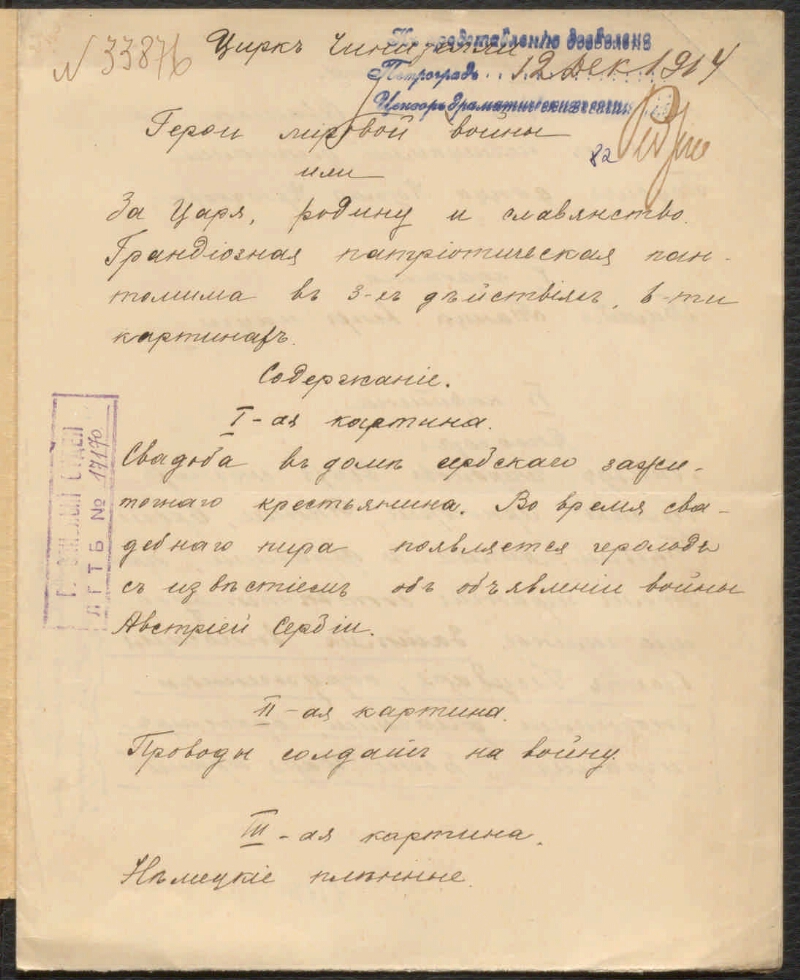 N 33876 Циркъ Чинизелли
Къ представленію дозволена
Петроградъ. 12 Дек 1914
Цензоръ драматическихъ сочиненій
82
Герои міровой войны
или
За Царя, родину и славянство.
Грандіозная патріотическая пан-
томима въ 3-ехъ дѣйствіяхъ, 6-ти
картинахъ.
Содержаніе.
I-ая картина.
Свадьба въ домѣ сербскаго зажи-
точнаго крестьянина. Во время сва-
дебнаго пира появляется герольдъ
съ извѣстіемъ объ объявленіи войны
Австріей Сербіи.
II-ая картина.
Проводы солдатъ на войну.
III-ая картина.
Нѣмецкіе плѣнные.
ЛГТБ № 17170